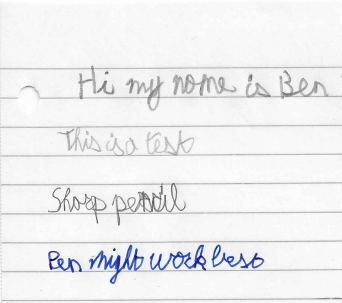 Hi my name is Ben
This is a test
Sharp pencil
Pen might work best